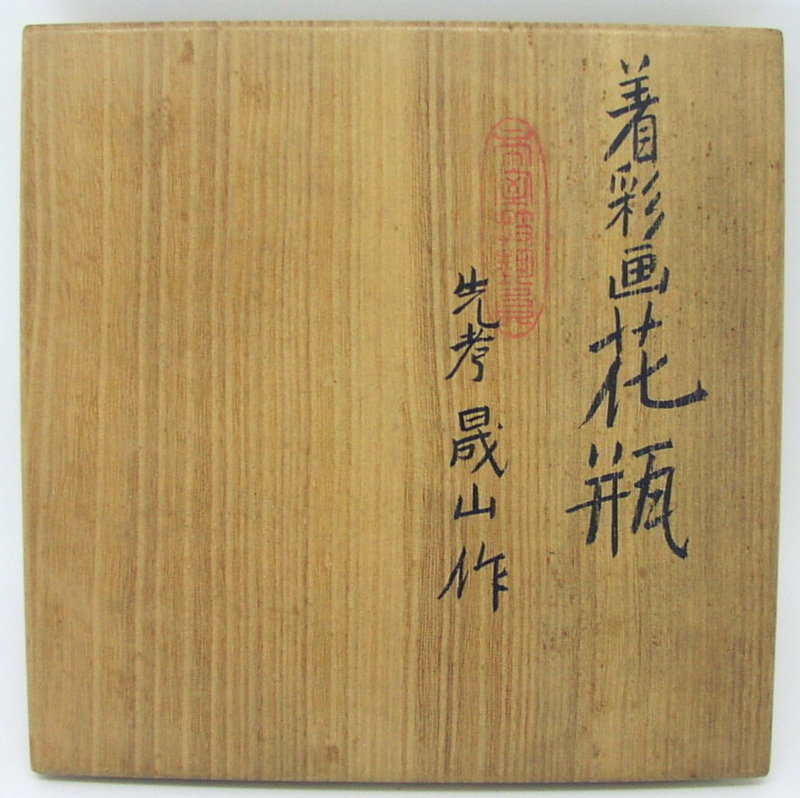 着彩画花瓶
先考 晟山 作